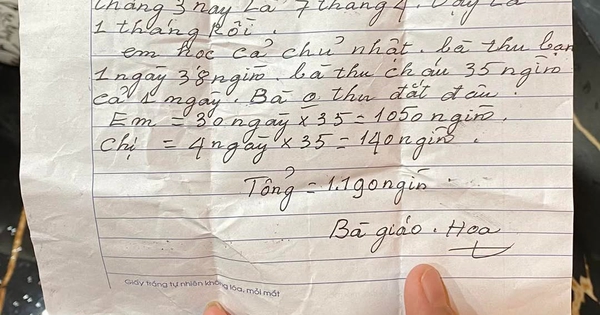 tháng 3 nay là 7 tháng 4. Vậy là
1 tháng rồi.
em học cả chủ nhật. bà thu bạn
1 ngày 38 ngìn. bà thu cháu 35 ngìn
cả 1 ngày. Bà o thu đắt đâu.
Em = 30 ngày x 35 = 1050 ngìn.
chị = 4 ngày x 35 = 140 ngìn.
Tổng = 1.190 ngìn
Bà giáo. Hoa
Giấy trắng tự nhiên không lóa, mỏi mắt